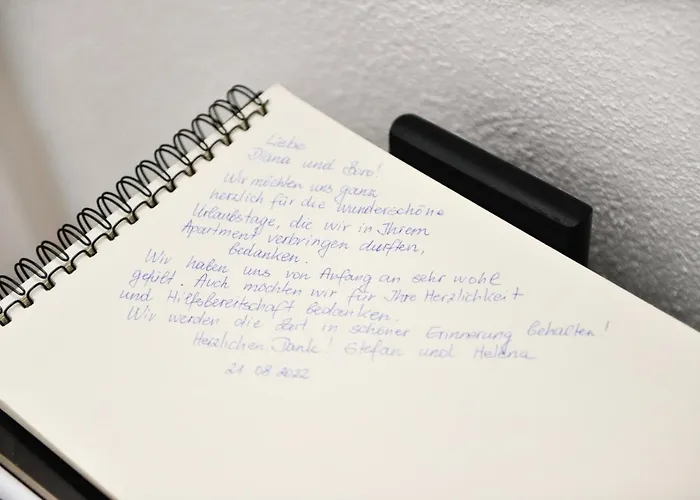 Liebe
Diana und Boro!
Wir möchten uns ganz
herzlich für die wunderschöne
Urlaubstage, die wir in Ihrem
Apartment verbringen durften,
bedanken.
Wir haben uns von Anfang an sehr wohl
gefühlt. Auch möchten wir für Ihre Herzlichkeit
und Hilfsbereitschaft bedanken.
Wir werden die Zeit in schöner Erinnerung behalten!
Herzlichen Dank! Stefan und Helena
21 08 2022